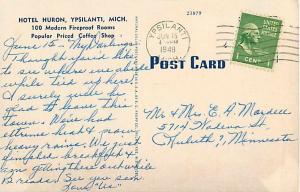 HOTEL HURON, YPSILANTI, MICH.
100 Modern Fireproof Rooms
Popular Priced Coffee Shop
23879
YPSILANTI
JUN 15
1948
1 CENT 1
POST CARD
June 15 - My Darlings
Thought you'd like
to see where we abide
while tied up here.
I surely will be
glad to leave this
town. We've had
extreme heat & now
heavy rains. We just
finished breakfast &
am getting there on while
Be readie. See you soon.
Love "Us"
Mr & Mrs. E. A. Mardell
5714 Wadena St.
Duluth, Minnesota